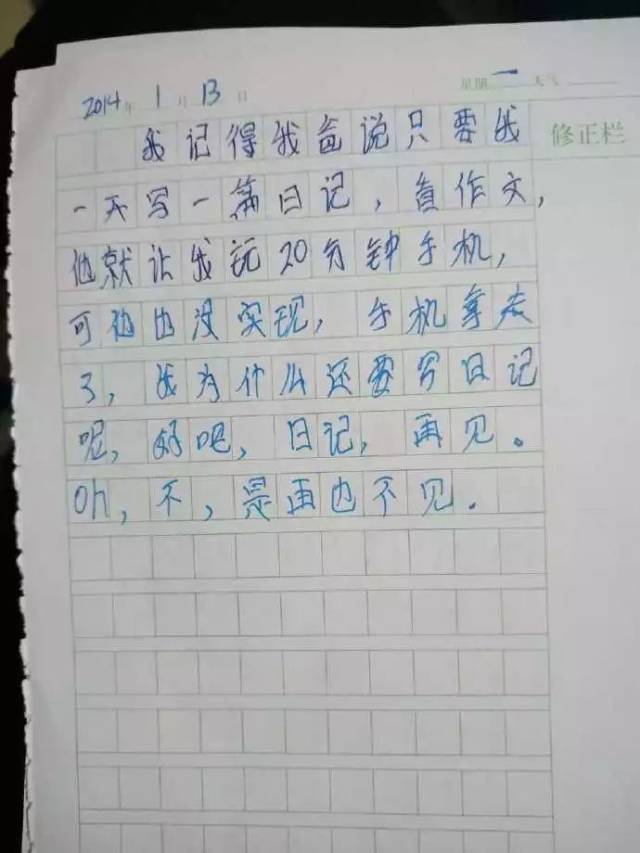 2014年 1月 13日 星期一 天气
修正栏
我记得我爸说只要我
一天写一篇日记，首作文，
他就让我玩20分钟手机，
可他也没实现，手机拿走
了，我为什么还要写日记
呢，好吧，日记，再见。
Oh，不，是再也不见．